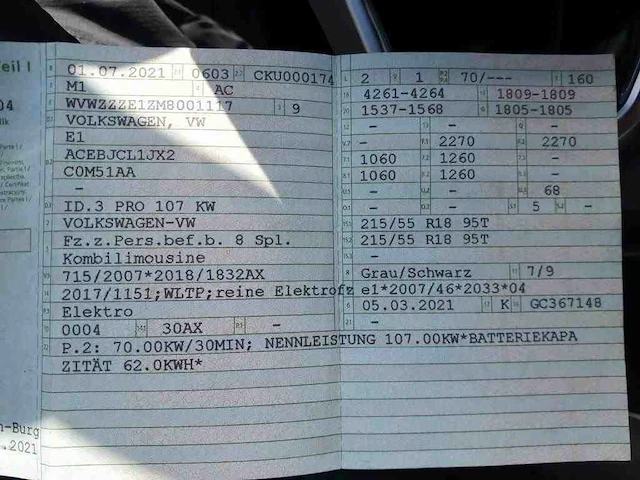 eil I
01.07.2021 0603 CKU000174
M1 AC
WVWZZZE1ZM8001117 9
VOLKSWAGEN, VW
E1
ACEBJCL1JX2
C0M51AA
–
ID.3 PRO 107 KW
VOLKSWAGEN-VW
Fz.z.Pers.bef.b. 8 Spl.
Kombilimousine
715/2007*2018/1832AX
2017/1151;WLTP;reine Elektrofz
Elektro
0004 30AX –
P.2: 70.00KW/30MIN; NENNLEISTUNG 107.00KW*BATTERIEKAPA
ZITÄT 62.0KWH*
n-Burg
.2021
2 1 70/--- 160
4261-4264 1809-1809
1537-1568 1805-1805
– – –
– 2270 2270
1060 1260 –
1060 1260 –
– – 68
– – 5 –
215/55 R18 95T
215/55 R18 95T
–
Grau/Schwarz 7/9
e1*2007/46*2033*04
05.03.2021 K GC367148
–